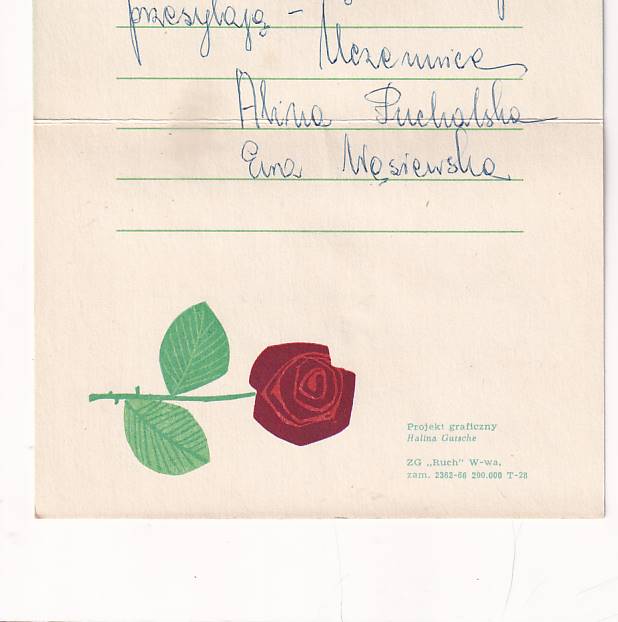 przesyłają –
Uczennice
Alina Puchalska
Ewa Wąsiewska
Projekt graficzny
Halina Gutsche
ZG „Ruch" W-wa,
zam. 2362-66 200.000 T-28